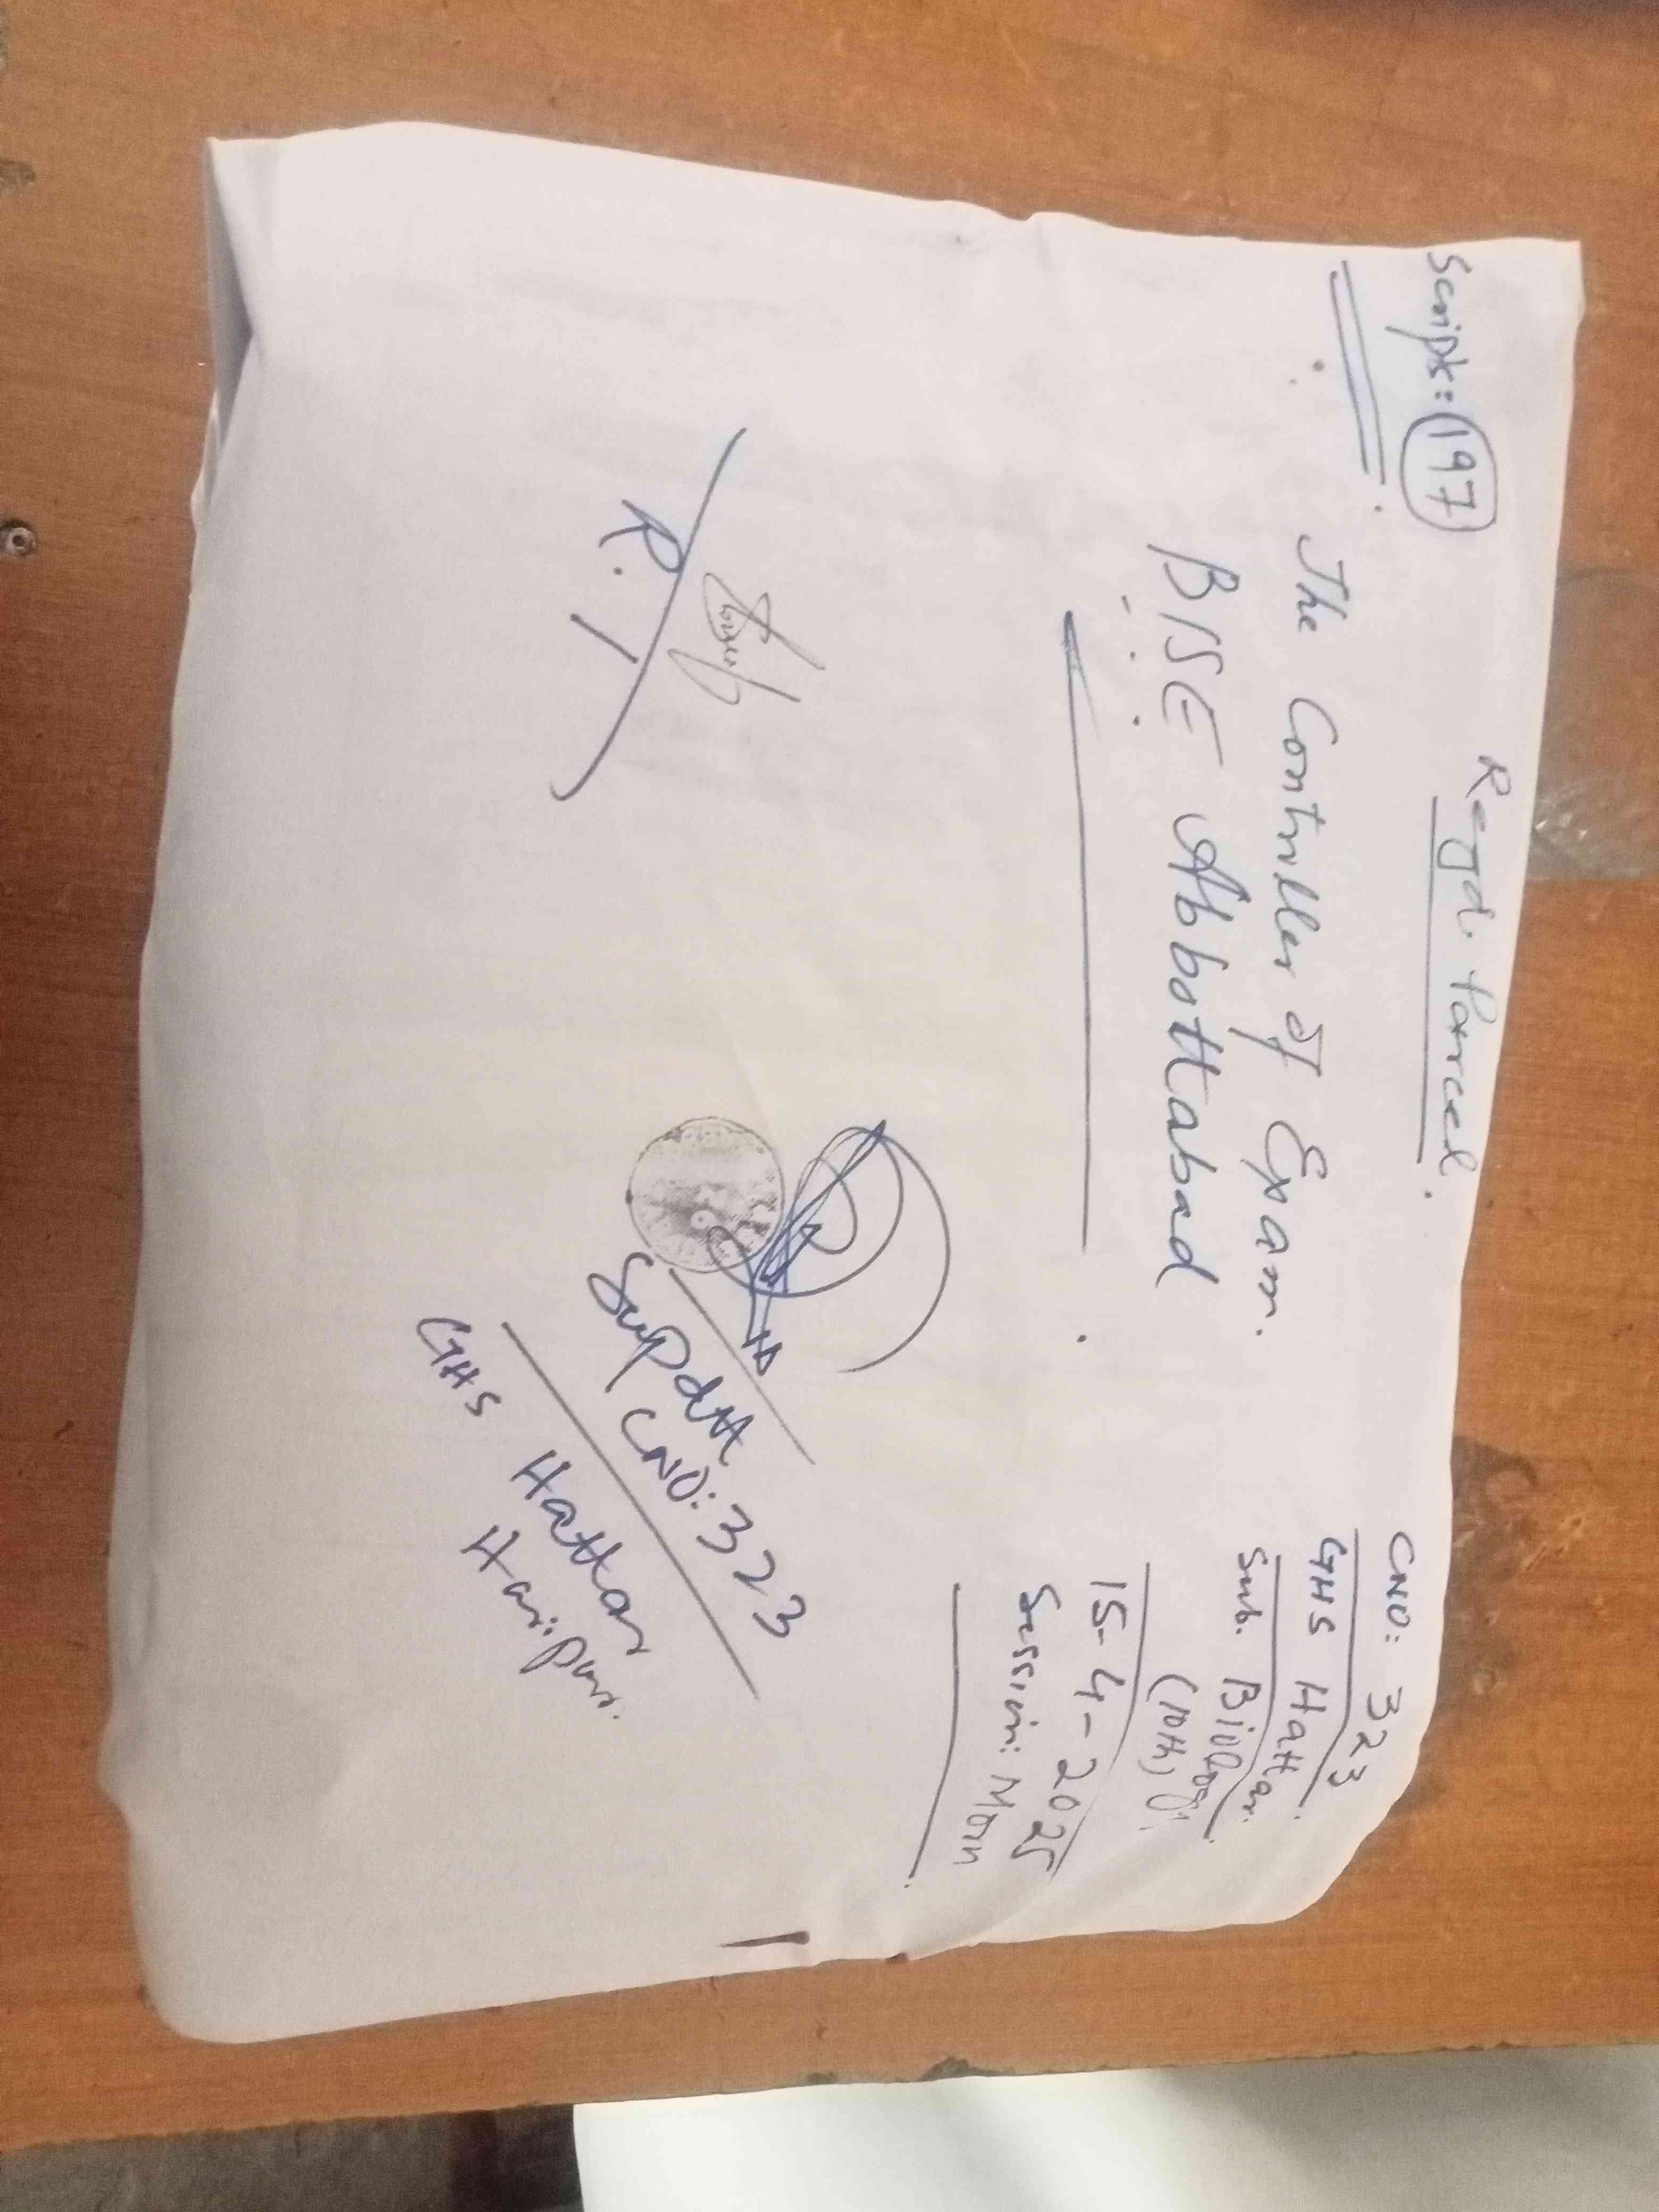 Regd. Parcel.
Scripts: 197
The Controller of Exam.
BISE Abbottabad
CNO: 323
GHS Hattar.
Sub. Biology.
(10th)
15-4-2025
Session: Morn
R.I
Supdtt
CNO: 323
GHS Hattar
Haripur.